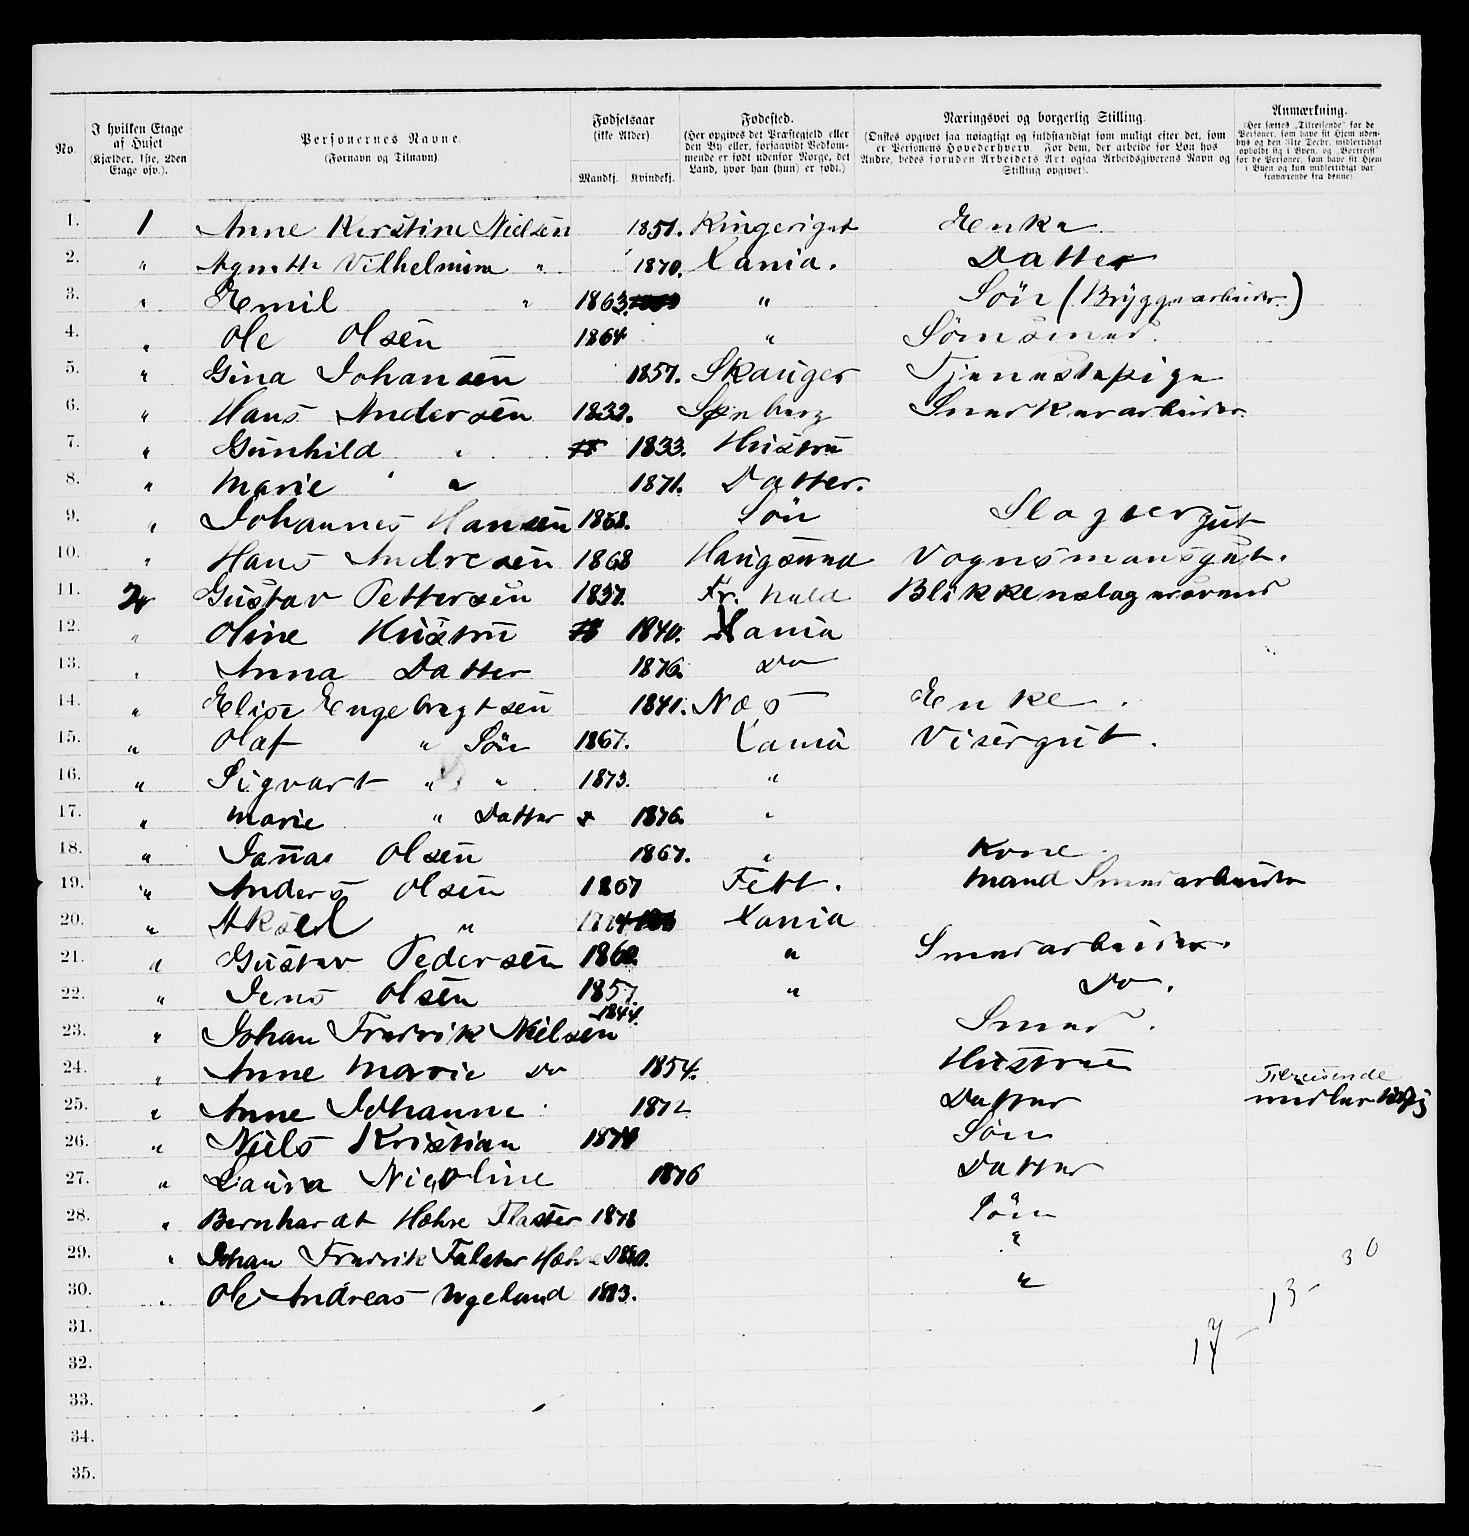 No. | I hvilken Etage af Huset (Kjælder, 1ste, 2den Etage osv.). | Personernes Navne. (Fornavn og Tilnavn) | Fødselsaar (ikke Alder) Mandkj. Kvindekj. | Fødested. (Her opgives det Præstegjeld eller den By eller, forsaavidt Vedkommende er født udenfor Norge, det Land, hvor han (hun) er født.) | Næringsvei og borgerlig Stilling. (Ønskes opgivet saa nøiagtigt og fuldstændigt som muligt efter det, som er Personens Hovederhverv. For dem, der arbeide for Løn hos Andre, bedes foruden Arbeidets Art ogsaa Arbeidsgiverens Navn og Stilling opgivet). | Anmærkning. (Her sættes „Tilreisende“ for de Personer, som have sit Hjem udenbys og den 31te Decbr. midlertidigt opholdt sig i Byen, og „Bortreist“ for de Personer, som have sit Hjem i Byen og kun midlertidigt var fraværende fra denne).
1. 1 Anne Kerstine Nielsen 1851. Ringeriget Enke
2. " Agnette Vilhelmine " 1870. Xania. Datter
3. " Emil " 1863. " Søn (Bryggeriarbeider)
4. " Ole Olsen 1864 " Sømsmed.
5. " Gina Johansen 1857. Skauger Tjenestepige
6. " Hans Andersen 1832. Snedkerarbeider
7. " Gunhild " 1833. Hustru
8. " Marie " 1871. Datter.
9. " Johannes Hansen 1858. Søn Slagtergut
10. " Hans Andresen 1868 Haugsund Vognmansgut.
11. 2 Gustav Pettersen 1837. Fr. hald Blikkenslagersvend
12. " Oline Hustru 1840. Xania
13. " Anna Datter 1876. Do
14. " Elise Engebregtsen 1841. Næs Enke.
15. " Olaf " Søn 1867. Xania Visergut.
16. " Sigvart " " 1873. "
17. " Marie " Datter 1876. "
18. " Olsen 1867. " Kone
19. " Anders Olsen 1867 Fett. Mand Smedarbeider
20. " Aksel " 1884 Xania
21. " Gustav Pedersen 1860 " Smedarbeider.
22. " Jens Olsen 1857. " Do.
23. " Johan Fredrik Nielsen 1844. Smed.
24. " Anne Marie Do 1854. Hustrue
25. " Anne Johanne 1872 Datter Tilreisende
26. " Niels Kristian 1874 Søn
27. " Laura Nicoline 1876 Datter
28. " Bernhardt Høhre Flaster 1878 Søn
29. " Johan Fredrik 1880. "
30. " Ole Andreas 1883. "
31.
32.
33.
34.
35.
30
13 -
17 -